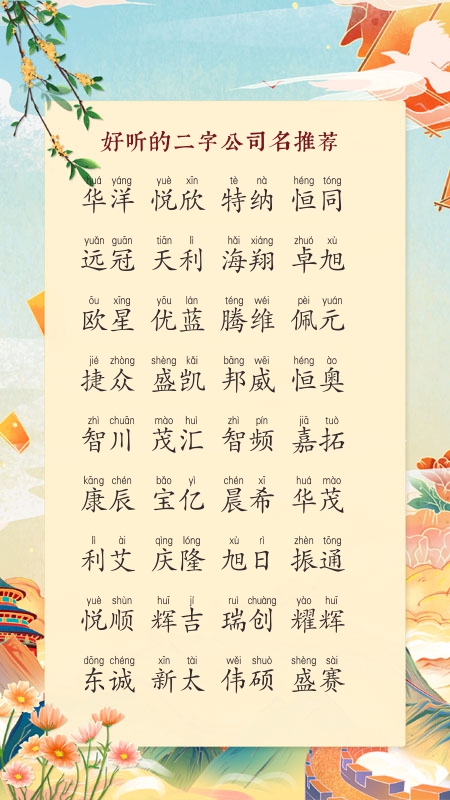 好听的二字公司名推荐
huá yáng yuè xīn tè nà héng tóng
华洋 悦欣 特纳 恒同
yuǎn guān tiān lì hǎi xiáng zhuó xù
远冠 天利 海翔 卓旭
ōu xīng yōu lán téng wéi pèi yuán
欧星 优蓝 腾维 佩元
jié zhòng shèng kǎi bāng wēi héng ào
捷众 盛凯 邦威 恒奥
zhì chuān mào huì zhì pín jiā tuò
智川 茂汇 智频 嘉拓
kāng chén bǎo yì chén xī huá mào
康辰 宝亿 晨希 华茂
lì ài qìng lóng xù rì zhèn tōng
利艾 庆隆 旭日 振通
yuè shùn huī jí ruì chuàng yào huī
悦顺 辉吉 瑞创 耀辉
dōng chéng xīn tài wěi shuò shèng sài
东诚 新太 伟硕 盛赛